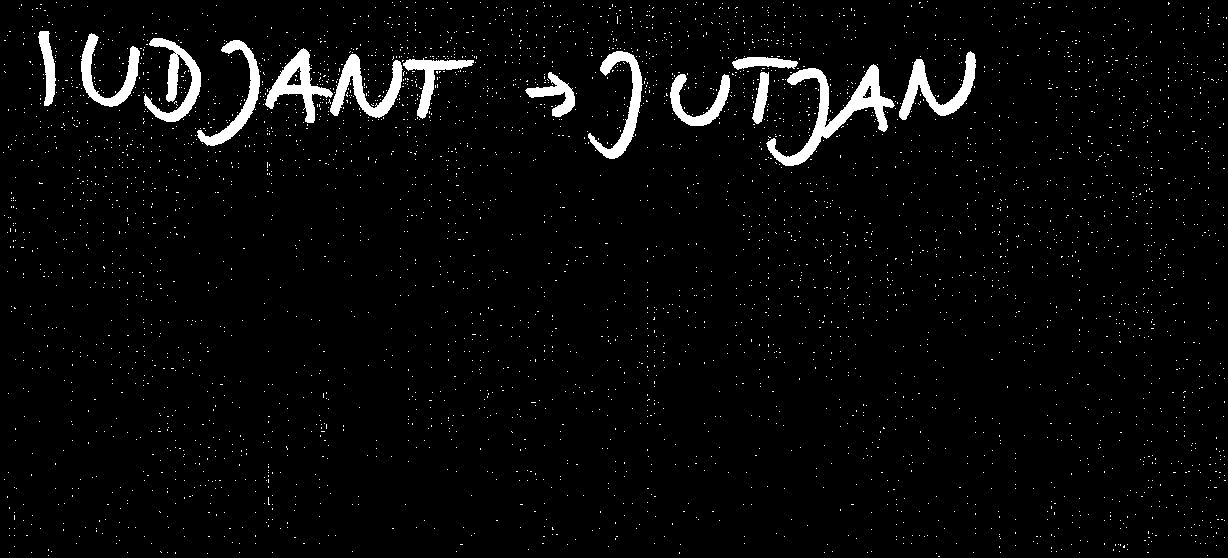 IUDJANT → JUTJAN